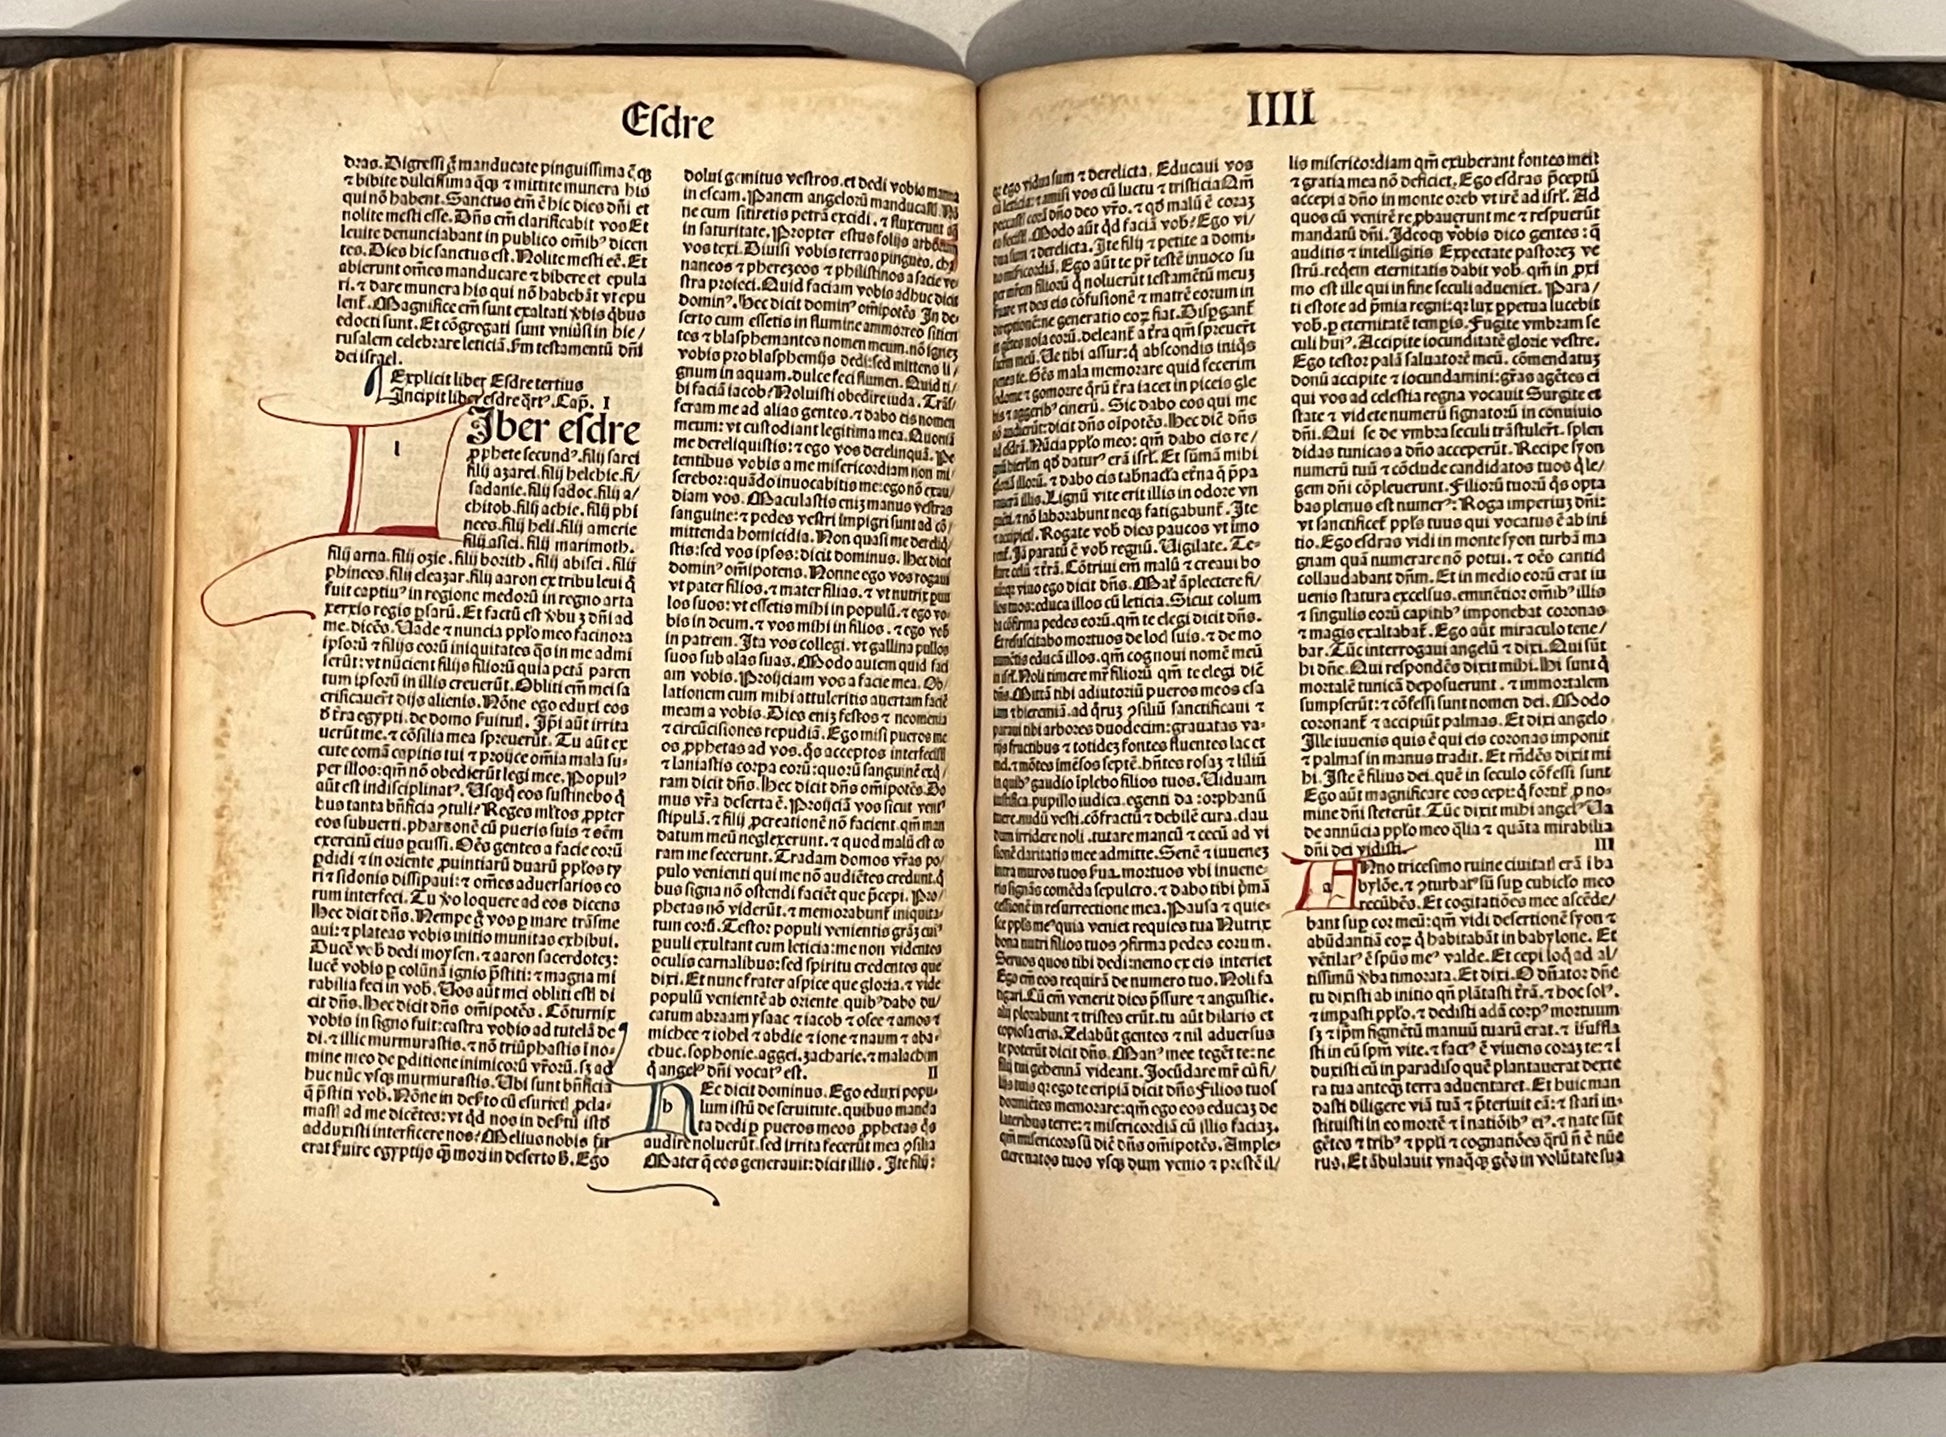 Esdre
dras. Digressi g̃ manducate pinguissima q̃q3
⁊ bibite dulcissima q̃q3 ⁊ mittite munera his
qui nõ habent. Sanctus em̃ ẽ hic dies dñi et
nolite mesti esse. Dñs em̃ clarificabit vos Et
leuite denunciabant in publico om̃ib⁹ dicen
tes. Dies hic sanctus est. Nolite mesti eẽ. Et
abierunt om̃es manducare ⁊ bibere et epula
ri. ⁊ dare munera his qui nõ habebãt vt epu
lent᷑. Magnifice em̃ sunt exaltati v̾bis q̃bus
edocti sunt. Et cõgregati sunt vniũsi in hie/
rusalem celebrare leticiã. ẜm testamentũ dñi
dei israel.
Explicit liber Esdre tertius
Incipit liber esdre q̃rt⁹. Cap̃. I
l
Iber esdre
ꝓphete secund⁹. filij sarei
filij azarei. filij helchie. fi/
sadanie. filij sadoc. filij a/
chitob. filij achie. filij phi
nees. filij heli. filij amerie
filij asiei. filij marimoth.
filij arna. filij ozie. filij borith. filij abisei. filij
phinees. filij eleazar. filij aaron ex tribu leui q̃
fuit captiu⁹ in regione medorũ in regno arta
xerxis regis ꝑsarũ. Et factũ est v̾bu3 dñi ad
me. dicẽs. Uade ⁊ nuncia pplo meo facinora
ipsorũ ⁊ filijs eorũ iniquitates q̃s in me admi
serũt: vt nũcient filijs filiorũ quia pctã paren
tum ipsorũ in illis creuerũt. Obliti em̃ mei sa
crificauer̃t dijs alienis. Nõne ego eduxi eos
d̾ t̾ra egypti. de domo ẜuitut᷑. Ip̃i aũt irrita
uerũt me. ⁊ cõsilia mea spreuerũt. Tu aũt ex
cute comã capitis tui ⁊ proijce om̃ia mala su-
per illos: qm̃ nõ obedierũt legi mee. Popul⁹
aũt est indisciplinat⁹. Usq3q̃ eos sustinebo q̃
bus tanta bñficia ꝯtuli? Reges ml̃tos ꝓpter
eos subuerti. pharaonẽ cũ pueris suis ⁊ oẽm
exercitũ eius ꝑcussi. Oẽs gentes a facie eorũ
ꝑdidi ⁊ in oriente ꝓuintiarũ duarũ pplos ty
ri ⁊ sidonis dissipaui: ⁊ om̃es aduersarios eo
rum interfeci. Tu v̾o loquere ad eos dicens
Hec dicit dñs. Nempe g̃ vos ꝑ mare trãsme
aui: ⁊ plateas vobis initio munitas exhibui.
Ducẽ vob̾ dedi moysen. ⁊ aaron sacerdote3:
lucẽ vobis ꝑ colũnã ignis p̃stiti: ⁊ magna mi
rabilia feci in vob̾. Uos aũt mei obliti estl di
cit dñs. Hec dicit dñs om̃ipotẽs. Cõturnix
vobis in signo fuit: castra vobis ad tutelã de
di. ⁊ illic murmurastis. ⁊ nõ triũphastis ĩ no-
mine meo de ꝑditione inimicorũ vr̃orũ. s3 ad
huc nũc vsq3 murmurastis. Ubi sunt bñficia
q̃ p̃stiti vob̾. Nõne in desto cũ esuriet᷑ ꝓcla-
mastl ad me dicẽtes: vt qd̾ nos in destũ istũ
adduxisti interficere nos? Melius nobis fu
erat ẜuire egyptijs q̃3 mori in deserto B. Ego
dolui gemitus vestros. et dedi vobis manna
in escam. Panem angelorũ manducastl. Nõ
ne cum sitiretis petrã excidi. ⁊ fluxerunt aq̃
in saturitate. Propter estus folijs arborum
vos texi. Diuisi vobis terras pingues. cha
naneos ⁊ pherezeos ⁊ philistinos a facie ve-
stra proieci. Quid faciam vobis adhuc dicit
domin⁹. Hec dicit domin⁹ om̃ipotẽs In de-
serto cum essetis in flumine ammorreo sitien
tes ⁊ blasphemantes nomen meum. nõ igne3
vobis pro blasphemijs dedi: sed mittens li/
gnum in aquam. dulce feci flumen. Quid ti/
bi faciã iacob? Noluisti obedire iuda. Trãs/
feram me ad alias gentes. ⁊ dabo eis nomen
meum: vt custodiant legitima mea. Quoniã
me dereliquistis: ⁊ ego vos derelinquã. Pe
tentibus vobis a me misericordiam non mi/
serebor: quãdo inuocabitis me: ego nõ exau/
diam vos. Maculastis eni3 manus vestras
sanguine: ⁊ pedes vestri impigri sunt ad cõ/
mittenda homicidia. Non quasi me dereliq̃/
stis: sed vos ipsos: dicit dominus. Hec dicit
domin⁹ om̃ipotens. Nonne ego vos rogaui
vt pater filios. ⁊ mater filias. ⁊ vt nutrix paru
los suos: vt essetis mihi in populũ. ⁊ ego vo-
bis in deum. ⁊ vos mihi in filios. ⁊ ego vob̾
in patrem. Ita vos collegi. vt gallina pullos
suos sub alas suas. Modo autem quid faci
am vobis. Proijciam vos a facie mea. Ob/
lationem cum mihi attuleritis auertam faciẽ
meam a vobis. Dies eni3 festos ⁊ neomenia
⁊ circũcisiones repudiã. Ego misi pueros me
os ꝓphetas ad vos. q̃s acceptos interfecistl
⁊ laniastis corpa corũ: quorũ sanguinẽ exq̃/
ram dicit dñs. Hec dicit dñs om̃ipotẽs. Do
mus vr̃a deserta ẽ. Proijciã vos sicut vent⁹
stipulã. ⁊ filij ꝓcreationẽ nõ facient. qm̃ man
datum meũ neglexerunt. ⁊ quod malũ est co
ram me fecerunt. Tradam domos vr̃as po/
pulo venienti qui me nõ audiẽtes credunt. q̃
bus signa nõ ostendi faciẽt que p̃cepi. Pro/
phetas nõ viderũt. ⁊ memorabunt᷑ iniquita-
tum eorũ. Testor populi venientis gr̃a3 cui⁹
ꝑuuli exultant cum leticia: me non videntes
oculis carnalibus: sed spiritu credentes que
dixi. Et nunc frater aspice que gloria. ⁊ vide
populũ venientẽ ab oriente. quib⁹ dabo du/
catum abraam ysaac ⁊ iacob ⁊ osee ⁊ amos ⁊
michee ⁊ iohel ⁊ abdie ⁊ ione ⁊ naum ⁊ aba-
chuc. sophonie. aggei. zacharie. ⁊ malachim
q̃ angel⁹ dñi vocat⁹ est. II
h
Ec dicit dominus. Ego eduxi popu-
lum istũ de seruitute. quibus manda
ta dedi ꝑ pueros meos ꝓphetas q̃s
audire noluerũt. sed irrita fecerũt mea ꝯsilia
Mater q̃ eos generauit: dicit illis. Ite filij:
IIII
q2 ego vidua sum ⁊ derelicta. Educaui vos
cũ leticia: ⁊ amisi vos cũ luctu ⁊ tristicia Qm̃
peccastl corã dño deo vr̃o. ⁊ qd̾ malũ ẽ cora3
eo fecistl. Modo aũt qd̾ faciã vob̾? Ego vi/
dua sum ⁊ derelicta. Ite filij ⁊ petite a domi-
no misericordiã. Ego aũt te pr̃ testẽ inuoco su
per mr̃em filiorũ q̃ nolucrũt testamẽtũ meu3
ẜuare vt des eis cõfusionẽ ⁊ matrẽ eorum in
direptionẽ: ne generatio eo2 fiat. Disꝑgant᷑
in gẽtes noĩa eorũ. deleant᷑ a t̾ra qm̃ spreuer̃t
sacrm̃ meũ. Ue tibi assur: q̃ abscondis iniq̃s
penes te. Gẽs mala memorare quid fecerim
sodome ⁊ gomorre q̃rũ t̾ra iacet in piceis gle
bis ⁊ aggerib⁹ cinerũ. Sic dabo eos qui me
nõ audierũt: dicit dñs oĩpotẽs. Hec dic̃ dñs
ad esdrã. Nũcia pplo meo: qm̃ dabo eis re/
gnũ hierlm̃ qd̾ datur⁹ erã isrl̃. Et sũmã mihi
gloriã illorũ. ⁊ dabo eis tab̾nacl̃a et̾na q̃ p̃pa
raueram illis. Lignũ vite erit illis in odore vn
guẽti. ⁊ nõ laborabunt neq3 fatigabunt᷑. Ite
⁊ accipietl. Rogate vob̾ dies paucos vt imo
rent᷑. Iã paratũ ẽ vob̾ regnũ. Uigilate. Te-
stare celũ ⁊ t̾rã. Cõtriui em̃ malũ ⁊ creaui bo
nũ: q2 viuo ego dicit dñs. Mat̾ ãplectere fi/
lios tuos: educa illos cũ leticia. Sicut colum
ba cõfirma pedes eorũ. qm̃ te elegi dicit dñs.
Et resuscitabo mortuos de locl suis. ⁊ de mo
numẽtis educã illos. qm̃ cognoui nomẽ meũ
in isrl̃. Noli timere mr̃ filiorũ qm̃ te elegi dic̃
dñs. Mittã tibi adiutoriũ pueros meos esa
iam ⁊ hieremiã. ad q̃ru3 ꝯsiliũ sanctificaui ⁊
paraui tibi arbores duodecim: grauatas va-
rijs fructibus ⁊ totide3 fontes fluentes lac et
mel. ⁊ mõtes imẽsos septẽ. hñtes rosa3 ⁊ liliũ
in quib⁹ gaudio ĩplebo filios tuos. Uiduam
iustifica. pupillo iudica. egenti da: orphanũ
tuere. nudũ vesti. cõfractũ ⁊ debilẽ cura. clau
dum irridere noli. tutare mancũ ⁊ cecũ ad vi
sionẽ claritatis mee admitte. Senẽ ⁊ iuuene3
intra muros tuos ẜua. mortuos vbi inuene-
ris signãs comẽda sepulcro. ⁊ dabo tibi p̾mã
cessionẽ in resurrectione mea. Pausa ⁊ quie-
sce ppls me⁹ quia veniet requies tua Nutrix
bona nutri filios tuos ꝯfirma pedes eorum.
Seruos quos tibi dedi: nemo ex eis interiet
Ego em̃ eos requirã de numero tuo. Noli fa
tigari. Cũ em̃ venerit dies p̃ssure ⁊ angustie.
alij plorabunt ⁊ tristes erũt. tu aũt hilaris et
copiosa eris. Zelabũt gentes ⁊ nil aduersus
te poterũt dicit dñs. Man⁹ mee teget̾ te: ne
filij tui gehennã videant. Iocũdare mr̃ cũ fi/
lijs tuis q2 ego te eripiã dicit dñs Filios tuos
dormiẽtes memorare: qm̃ ego eos educa3 de
lateribus terre: ⁊ misericordiã cũ illis facia3.
qm̃ misericors sũ dic̃ dñs om̃ipotẽs. Ample-
ctere natos tuos vsq3 dum venio ⁊ prestẽ il/
lis misericordiam qm̃ exuberant fontes mei:
⁊ gratia mea nõ deficiet. Ego esdras p̃ceptũ
accepi a dño in monte oreb vt irẽ ad isrl̃. Ad
quos cũ venirẽ reꝓbauerunt me ⁊ respuerũt
mandatũ dñi. Ideoq3 vobis dico gentes: q̃
auditis ⁊ intelligitis Expectate pastore3 ve
strũ. reqẽm eternitatis dabit vob̾. qm̃ in ꝓxi
mo est ille qui in fine seculi adueniet. Para/
ti estote ad p̃mia regni: q2 lux ꝑpetua lucebit
vob̾. ꝑ eternitatẽ tempis. Fugite vmbram se
culi hui⁹. Accipite iocunditatẽ glorie vestre.
Ego testor palã saluatorẽ meũ. cõmendatu3
donũ accipite ⁊ iocundamini: gr̃as agẽtes ei
qui vos ad celestia regna vocauit Surgite et
state ⁊ videte numerũ signatorũ in conuiuio
dñi. Qui se de vmbra seculi trãstuler̃t. splen
didas tunicas a dño acceperũt. Recipe syon
numerũ tuũ ⁊ cõclude candidatos tuos q̃ le/
gem dñi cõpleuerunt. Filiorũ tuorũ q̃s opta
bas plenus est numer⁹: Roga imperiu3 dñi:
vt sanctificet᷑ ppls tuus qui vocatus ẽ ab ini
tio. Ego esdras vidi in monte syon turbã ma
gnam quã numerare nõ potui. ⁊ oẽs canticl
collaudabant dñm. Et in medio eorũ erat iu
uenis statura excelsus. eminẽtior om̃ib⁹ illis
⁊ singulis eorũ capitib⁹ imponebat coronas
⁊ magis exaltabat᷑. Ego aũt miraculo tene/
bar. Tũc interrogaui angelũ ⁊ dixi. Qui sũt
hi dñe. Qui respondẽs dixit mihi. Hi sunt q̃
mortalẽ tunicã deposuerunt. ⁊ immortalem
sumpserũt: ⁊ cõfessi sunt nomen dei. Modo
coronant᷑ ⁊ accipiũt palmas. Et dixi angelo
Ille iuuenis quis ẽ qui eis coronas imponit
⁊ palmas in manus tradit. Et rñdẽs dixit mi
hi. Iste ẽ filius dei. quẽ in seculo cõfessi sunt
Ego aũt magnificare eos cepi: q̃ fortit᷑ ꝑ no-
mine dñi steterũt. Tũc dixit mihi angel⁹ Ua
de annũcia pplo meo q̃lia ⁊ quãta mirabilia
dñi dei vidisti. III
a
Nno tricesimo ruine ciuitatl erã ĩ ba
bylõe. ⁊ ꝯturbat⁹ sũ sup cubicl̃o meo
recũbẽs. Et cogitatiões mee ascẽde/
bant sup cor meũ: qm̃ vidi desertionẽ syon ⁊
abũdantiã eo2 q̃ habitabãt in babylone. Et
vẽtilat⁹ ẽ sp̃us me⁹ valde. Et cepi loq̃ ad al/
tissimũ v̾ba timorata. Et dixi. O dñator dñe
tu dixisti ab initio qñ plãtasti t̾rã. ⁊ hoc sol⁹.
⁊ impasti pplo. ⁊ dedisti adã corp⁹ mortuum
s3 ⁊ ip̃m figmẽtũ manuũ tuarũ erat. ⁊ isuffla
sti in eũ sp̃m vite. ⁊ fact⁹ ẽ viuens cora3 te: ⁊ ĩ
duxisti eũ in paradiso quẽ plantauerat dexte
ra tua anteq̃3 terra aduentaret. Et huic man
dasti diligere viã tuã ⁊ p̃teriuit eã: ⁊ stati in-
stituisti in eo mortẽ ⁊ ĩ natiõib⁹ ei⁹. ⁊ nate sũt
gẽtes ⁊ trib⁹ ⁊ ppli ⁊ cognatiões q̃rũ ñ ẽ nũe
rus. Et ãbulauit vnaq̃q3 gẽs in volũtate sua